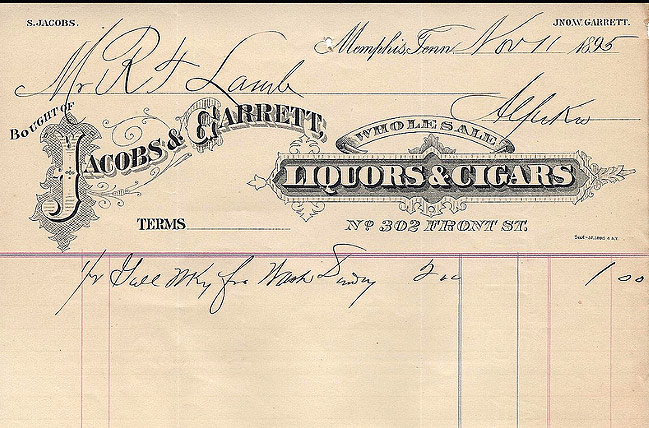 S. JACOBS.
JNO. W. GARRETT.
Memphis, Tenn. Nov 11 1895
Mr R F Lamb
BOUGHT OF
JACOBS & GARRETT,
WHOLESALE
LIQUORS & CIGARS
TERMS
No 302 FRONT ST.
Gall Wky for Wash 2 00 1 00